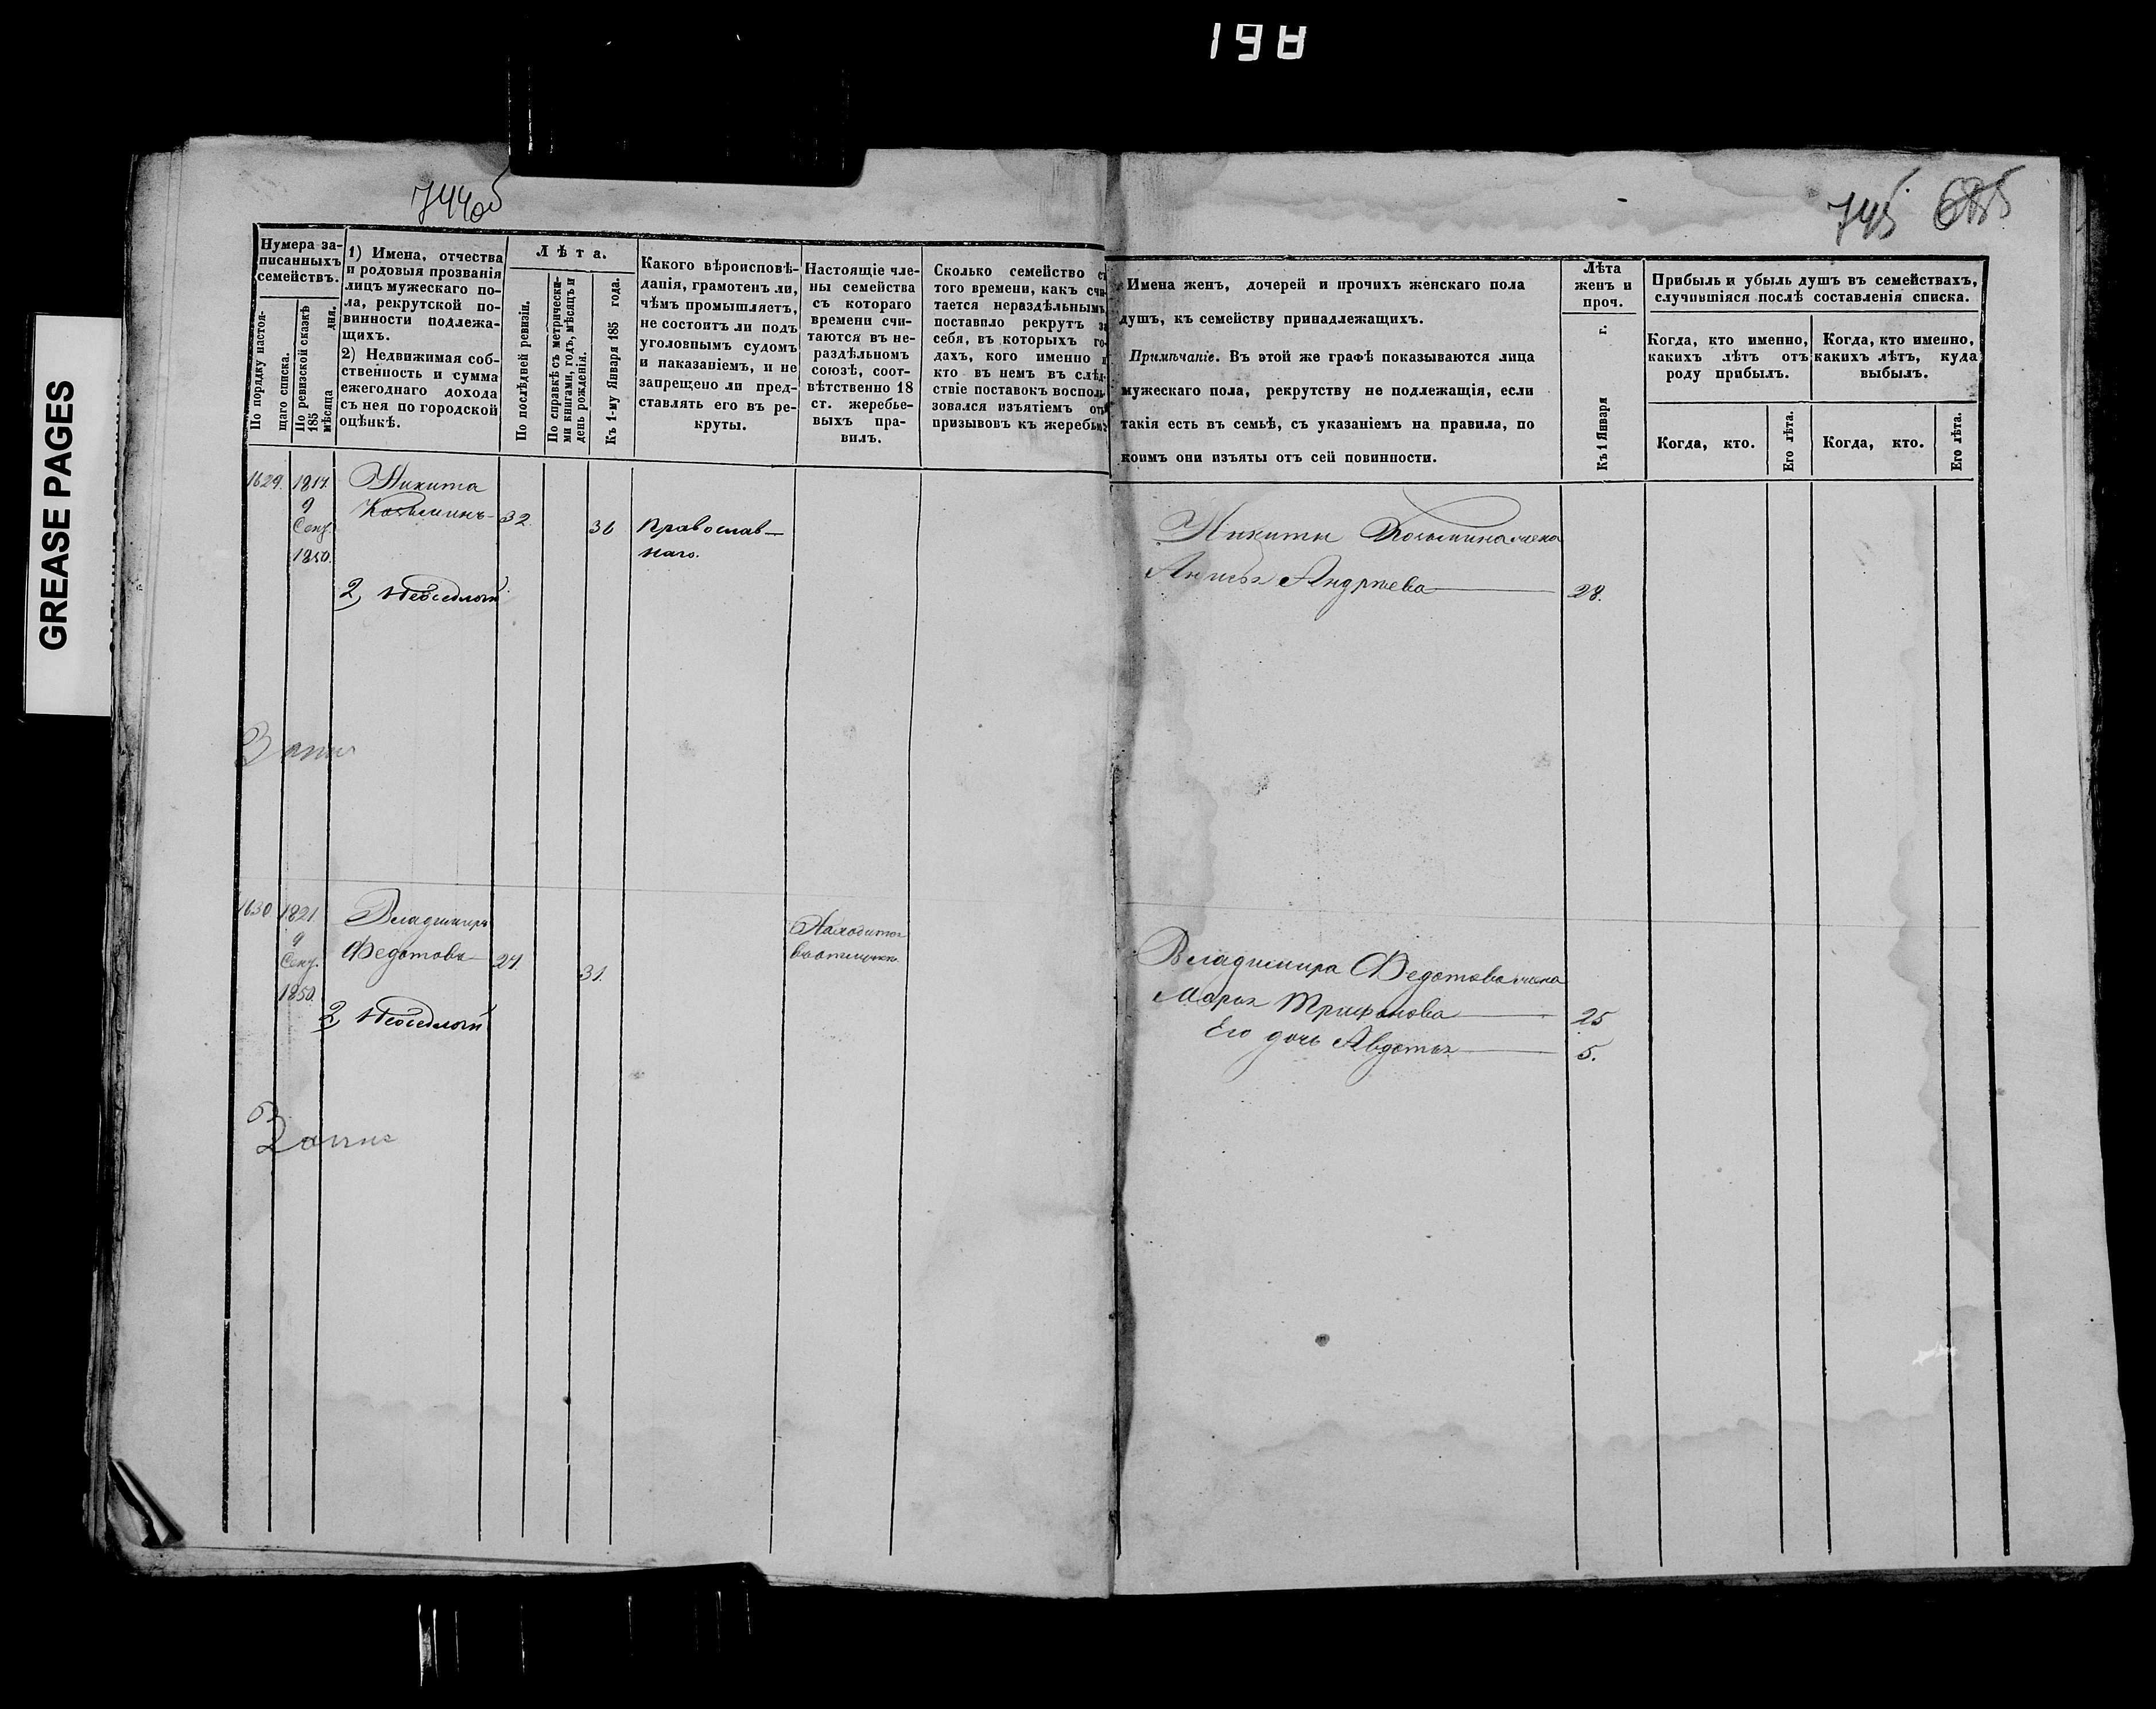 198
GREASE PAGES
744об
745
Нумера за-
писанныхъ
семействъ.
По порядку настоя-
щаго списка.
По ревизской сказкѣ
185
мѣсяца дня.
1) Имена, отчества
и родовыя прозванія
лицъ мужескаго по-
ла, рекрутской по-
винности подлежа-
щихъ.
2) Недвижимая соб-
ственность и сумма
ежегоднаго дохода
съ нея по городской
оцѣнкѣ.
Лѣта.
По послѣдней ревизіи.
По справкѣ съ метрически-
ми книгами, годъ, мѣсяцъ и
день рожденія.
Къ 1-му Января 185 года.
Какого вѣроисповѣ-
данія, грамотенъ ли,
чѣмъ промышляетъ,
не состоитъ ли подъ
уголовнымъ судомъ
и наказаніемъ, и не
запрещено ли пред-
ставлять его въ ре-
круты.
Настоящіе чле-
ны семейства
съ котораго
времени счи-
таются въ не-
раздѣльномъ
союзѣ, соот-
вѣтственно 18
ст. жеребье-
выхъ пра-
вилъ.
Сколько семейство съ
того времени, какъ счи-
тается нераздѣльнымъ,
поставило рекрутъ за
себя, въ которыхъ го-
дахъ, кого именно и
кто въ немъ въ слѣд-
ствіе поставокъ восполь-
зовался изъятіемъ отъ
призывовъ къ жеребью
Имена женъ, дочерей и прочихъ женскаго пола
душъ, къ семейству принадлежащихъ.
Примѣчаніе. Въ этой же графѣ показываются лица
мужескаго пола, рекрутству не подлежащія, если
такія есть въ семьѣ, съ указаніемъ на правила, по
коимъ они изъяты отъ сей повинности.
Лѣта
женъ и
проч.
Къ 1 Января г.
Прибыль и убыль душъ въ семействахъ,
случившіяся послѣ составленія списка.
Когда, кто именно,
какихъ лѣтъ отъ
роду прибылъ.
Когда, кто именно,
какихъ лѣтъ, куда
выбылъ.
Когда, кто.
Его лѣта.
Когда, кто.
Его лѣта.
1629. 1817. Никита
9 Козьминъ 32. 36 Православ-
Сент. наго.
1850.
2, Неоседлый
Никиты Козьмина жена
Анисья Андреева 28.
1630 1821. Владимиръ
9 Федотовъ 27. 31.
Сент.
1850.
2, Неоседлый
Находится
Владимира Федотова жена
Марья Трифонова 25
Его дочь Авдотья 5.